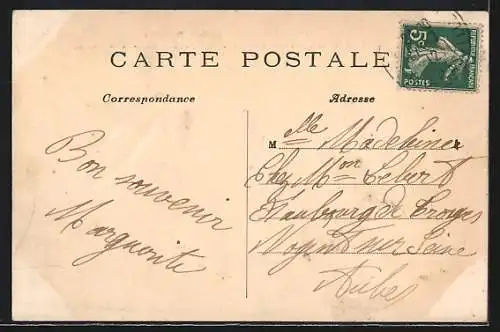 CARTE POSTALE
5c
REPUBLIQUE FRANÇAISE
POSTES
Correspondance
Adresse
Bon souvenir
Marguerite
Melle Madeleine
Chez Mon Lebert
Faubourg de Troyes
Nogent sur Seine
Aube